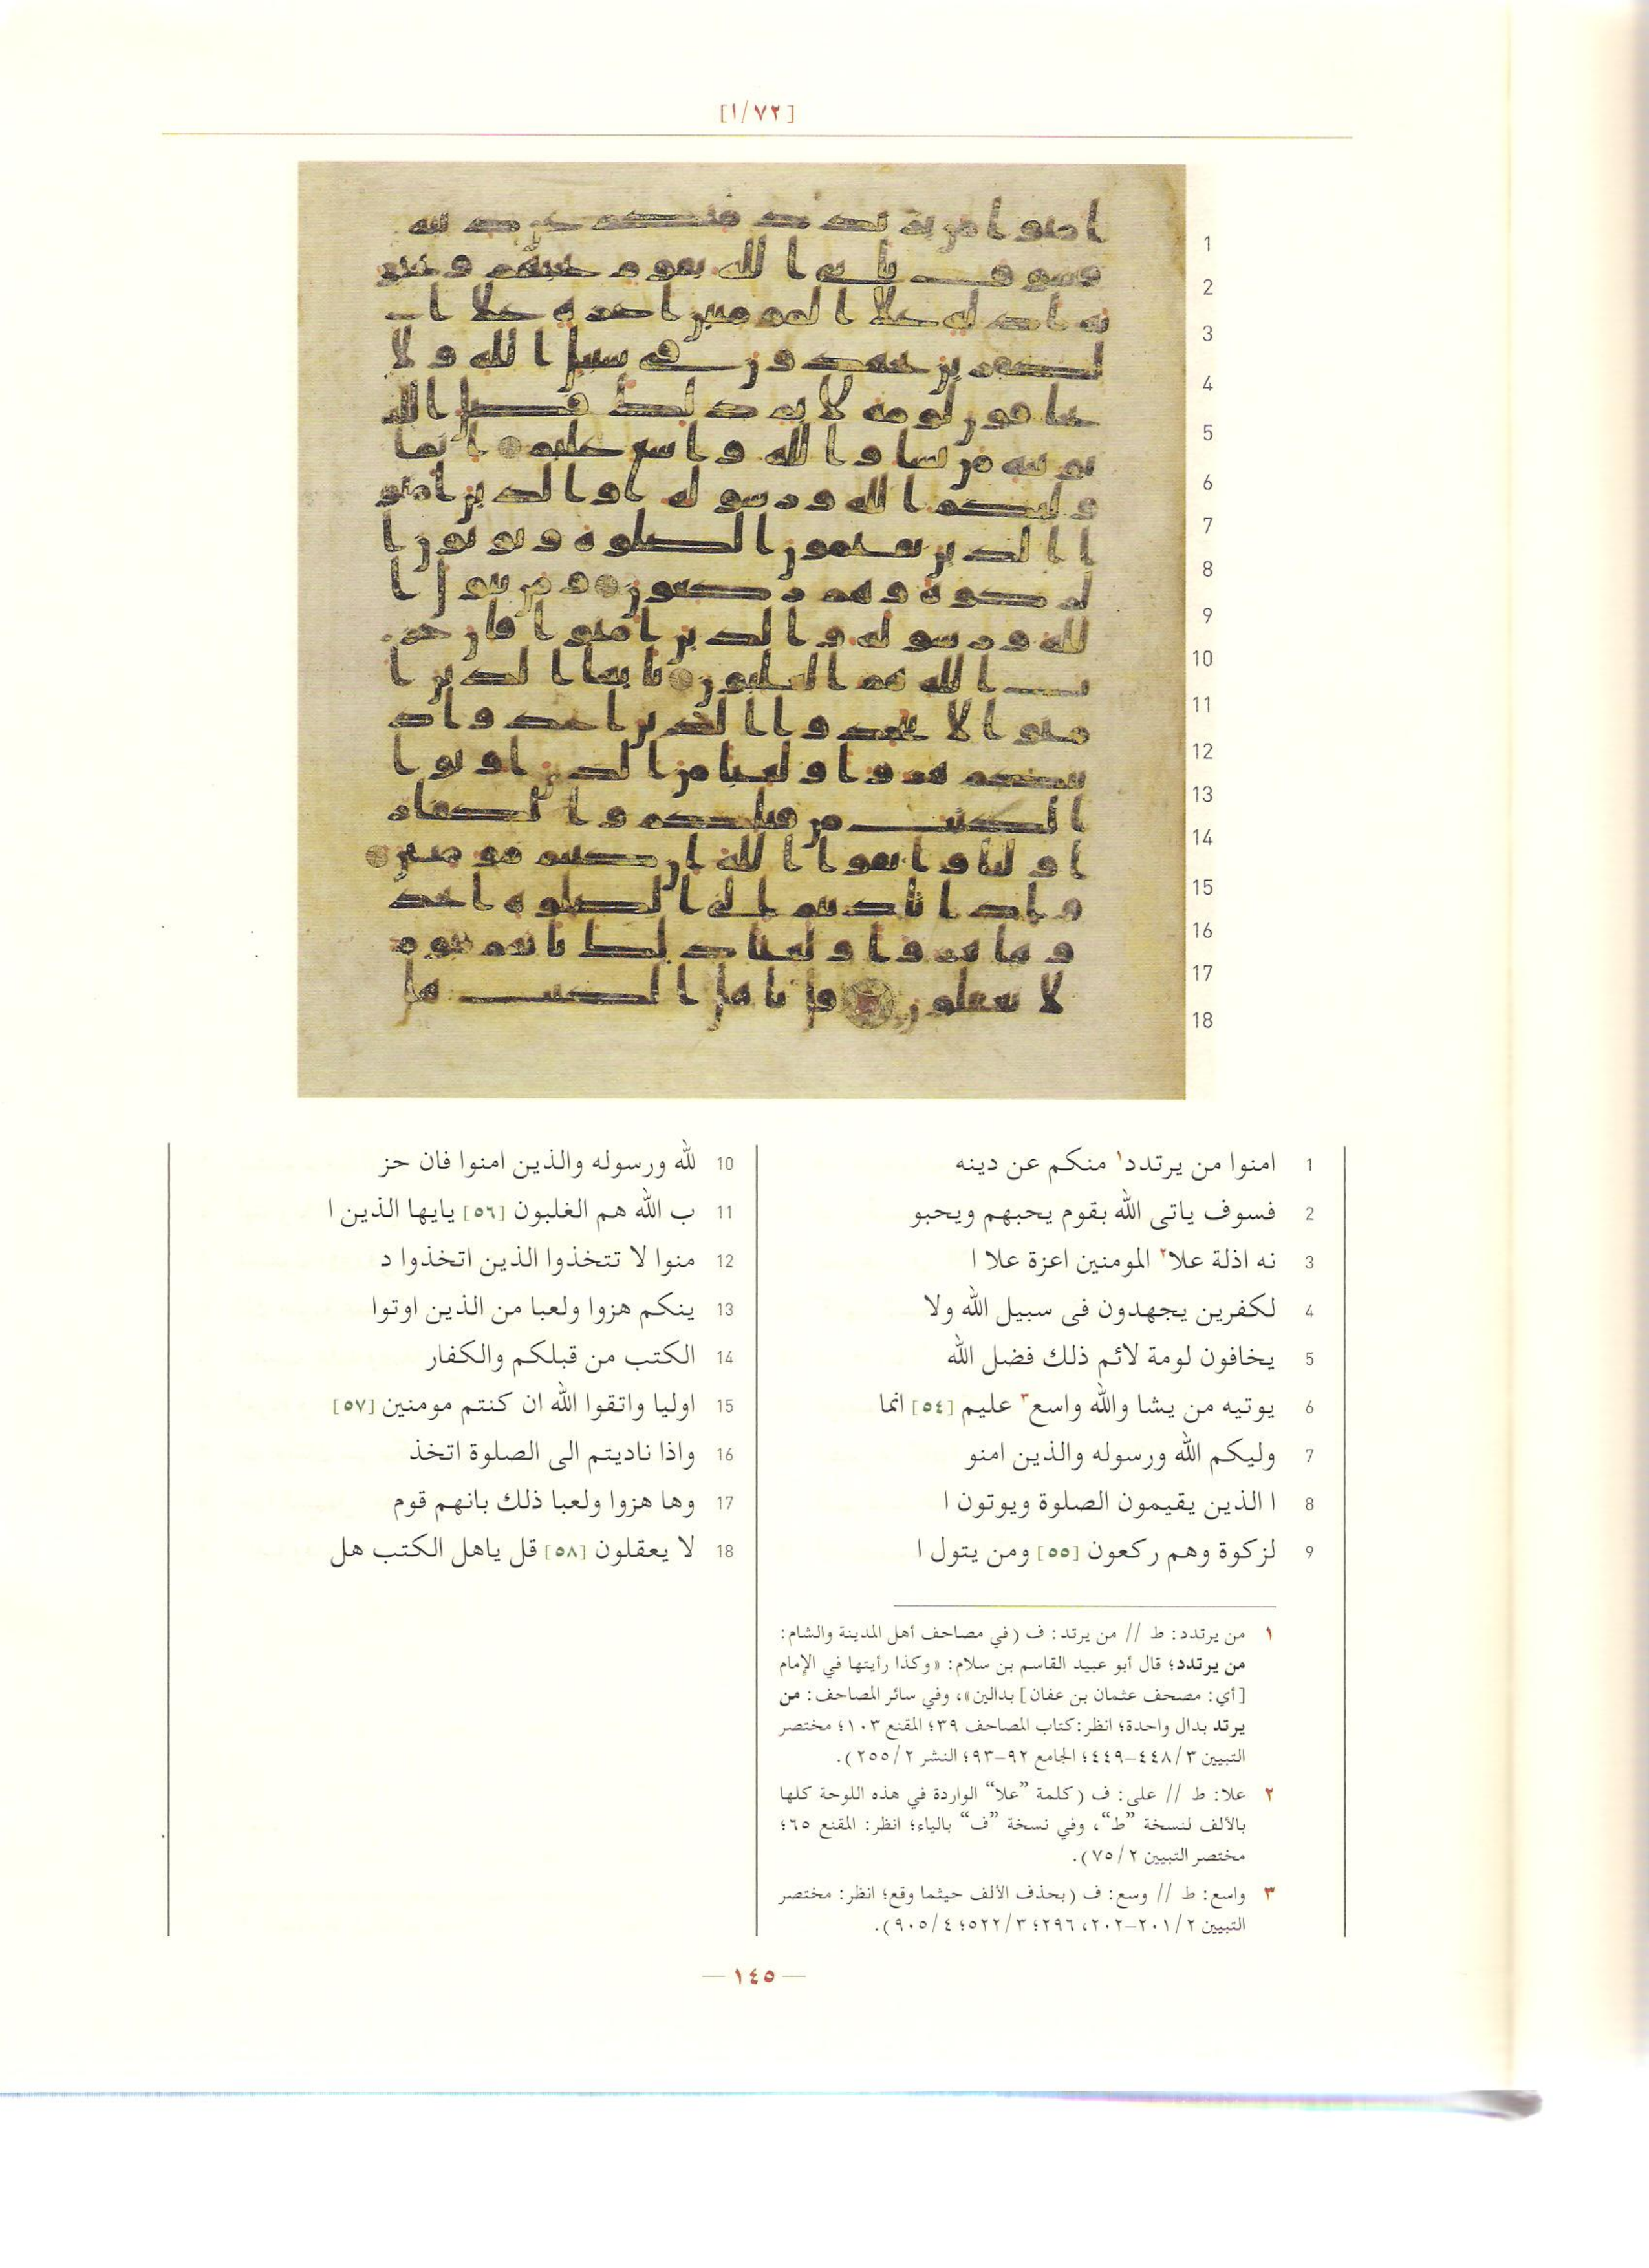 [١/٧٢]
1 امنوا من يرتدد١ منكم عن دينه
2 فسوف ياتى الله بقوم يحبهم ويحبو
3 نه اذلة علا٢ المومنين اعزة علا ا
4 لكفرين يجهدون فى سبيل الله ولا
5 يخافون لومة لائم ذلك فضل الله
6 يوتيه من يشا والله واسع٣ عليم [٥٤] انما
7 وليكم الله ورسوله والذين امنو
8 ا الذين يقيمون الصلوة ويوتون ا
9 لزكوة وهم ركعون [٥٥] ومن يتول ا
10 لله ورسوله والذين امنوا فان حز
11 ب الله هم الغلبون [٥٦] يايها الذين ا
12 منوا لا تتخذوا الذين اتخذوا د
13 ينكم هزوا ولعبا من الذين اوتوا
14 الكتب من قبلكم والكفار
15 اوليا واتقوا الله ان كنتم مومنين [٥٧]
16 واذا ناديتم الى الصلوة اتخذ
17 وها هزوا ولعبا ذلك بانهم قوم
18 لا يعقلون [٥٨] قل ياهل الكتب هل
١ من يرتدد: ط // من يرتد: ف (في مصاحف أهل المدينة والشام:
من يرتدد؛ قال أبو عبيد القاسم بن سلام: «وكذا رأيتها في الإمام
[أي: مصحف عثمان بن عفان] بدالين»، وفي سائر المصاحف: من
يرتد بدال واحدة؛ انظر: كتاب المصاحف ٣٩؛ المقنع ١٠٣؛ مختصر
التبيين ٤٤٨/٣–٤٤٩؛ الجامع ٩٢–٩٣؛ النشر ٢٥٥/٢).
٢ علا: ط // على: ف (كلمة ”علا“ الواردة في هذه اللوحة كلها
بالألف لنسخة ”ط“، وفي نسخة ”ف“ بالياء؛ انظر: المقنع ٦٥؛
مختصر التبيين ٧٥/٢).
٣ واسع: ط // وسع: ف (بحذف الألف حيثما وقع؛ انظر: مختصر
التبيين ٢٠١/٢–٢٠٢، ٢٩٦؛ ٥٢٢/٣؛ ٩٠٥/٤).
— ١٤٥ —